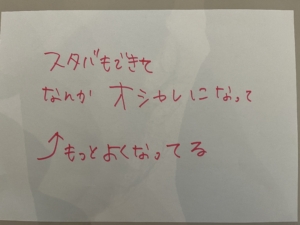 スタバもできて
なんか オシャレになって
↑もっとよくなってる